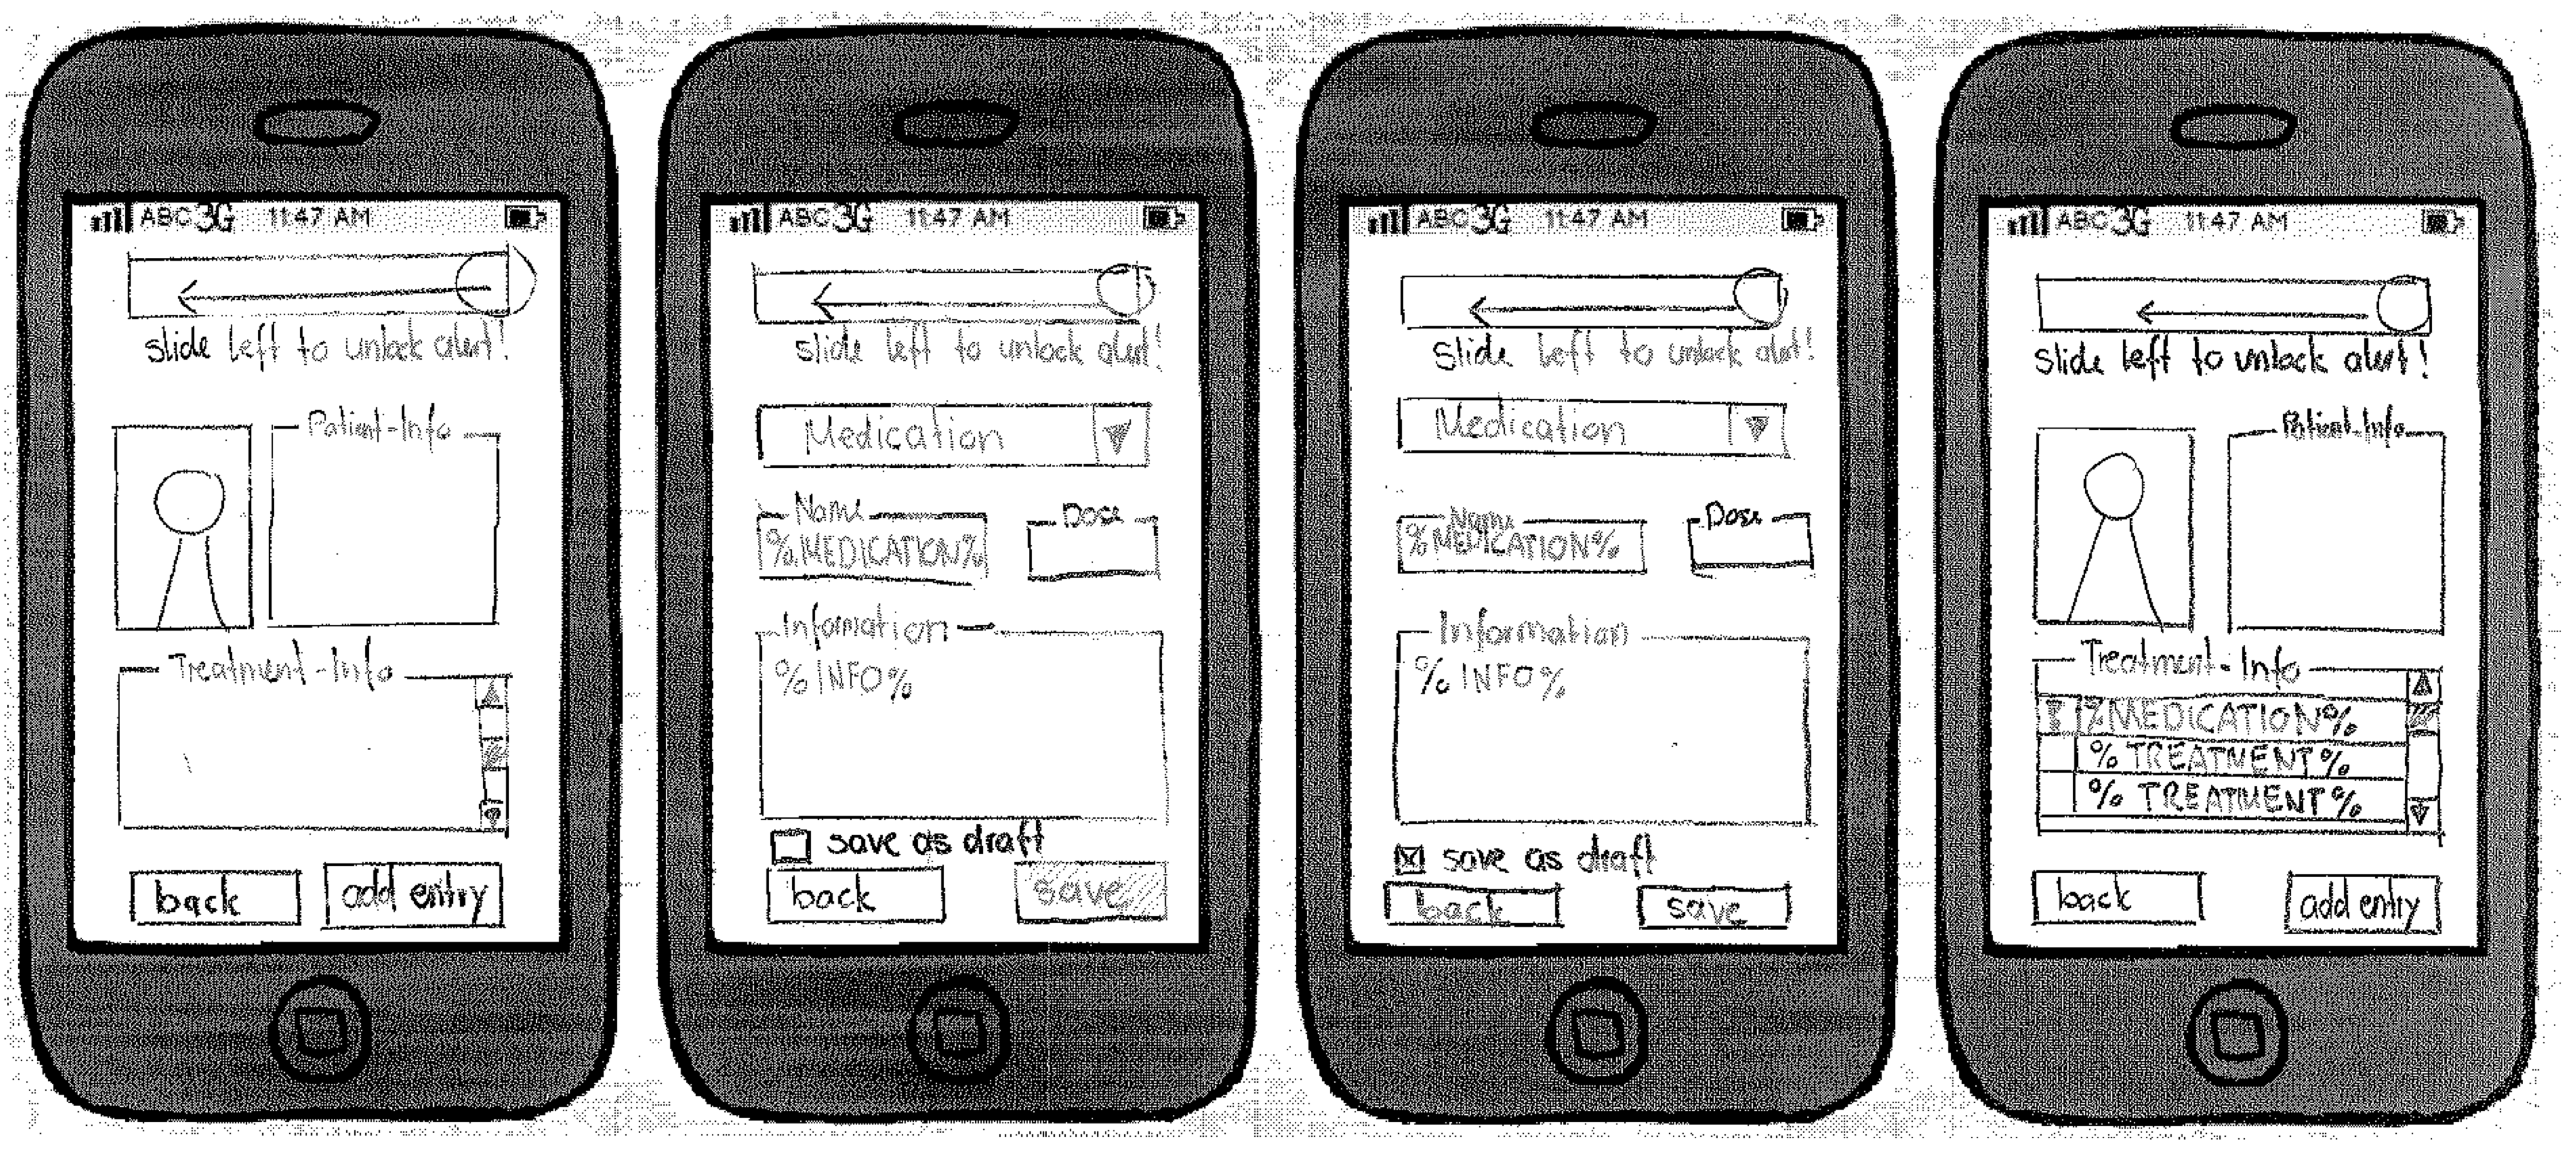 ABC 3G 11:47 AM
slide left to unlock alert!
Patient-Info
Treatment-Info
back
add entry
ABC 3G 11:47 AM
slide left to unlock alert!
Medication
Name
Dose
%MEDICATION%
Information
%INFO%
save as draft
back
save
ABC 3G 11:47 AM
slide left to unlock alert!
Medication
Name
Dose
%MEDICATION%
Information
%INFO%
save as draft
back
save
ABC 3G 11:47 AM
slide left to unlock alert!
Patient-Info
Treatment-Info
%MEDICATION%
%TREATMENT%
%TREATMENT%
back
add entry